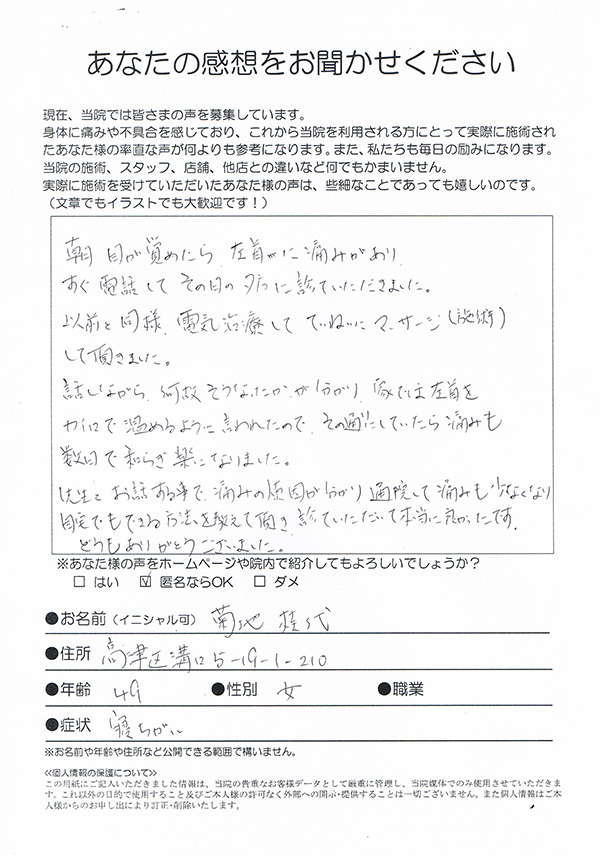 あなたの感想をお聞かせください
現在、当院では皆さまの声を募集しています。
身体に痛みや不具合を感じており、これから当院を利用される方にとって実際に施術され
たあなた様の率直な声が何よりも参考になります。また、私たちも毎日の励みになります。
当院の施術、スタッフ、店舗、他店との違いなど何でもかまいません。
実際に施術を受けていただいたあなた様の声は、些細なことであっても嬉しいのです。
（文章でもイラストでも大歓迎です！）
朝 目が覚めたら 左首に痛みがあり
すぐ電話して その日の夕方に診ていただきました。
以前と同様、電気治療して ていねいにマッサージ(施術)
して頂きました。
話しながら、何故そうなったかが分かり 家では左首を
カイロで温めるように言われたので、その通りにしていたら痛みも
数日で和らぎ楽になりました。
先生とお話する事で、痛みの原因が分かり 通院して痛みも少なくなり
自宅でもできる方法を教えて頂き 診ていただいて本当に良かったです。
どうもありがとうございました。
※あなた様の声をホームページや院内で紹介してもよろしいでしょうか？
□ はい ☑ 匿名ならOK □ ダメ
●お名前（イニシャル可） 菊地 桂代
●住所 高津区溝口5-19-1-210
●年齢 49 ●性別 女 ●職業
●症状 寝ちがい
※お名前や年齢や住所など公開できる範囲で構いません。
≪個人情報の保護について≫
この用紙にご記入いただきました情報は、当院の貴重なお客様データとして厳重に管理し、当院媒体でのみ使用させていただきま
す。これ以外の目的で使用すること及びご本人様の許可なく外部への開示・提供することは一切ございません。また個人情報はご本
人様からのお申し出により訂正・削除いたします。